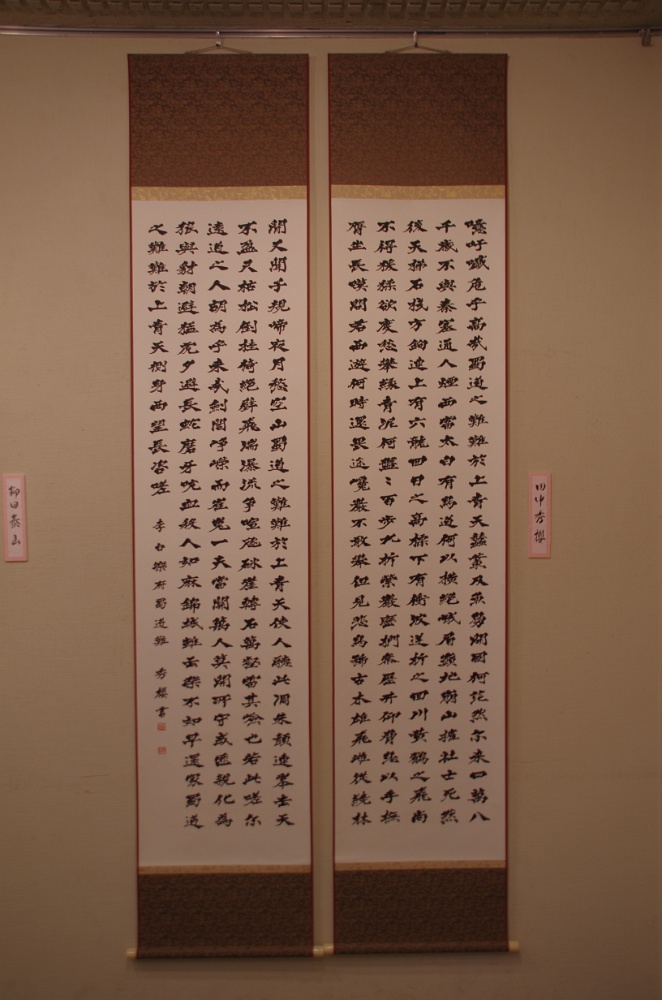 田中秀櫻
噫吁嚱危乎高哉蜀道之難難於上青天蠶叢及魚鳧開國何茫然尓来四萬八
千歳不與秦塞通人煙西當太白有鳥道何以横絶峨眉巓地崩山摧壮士死然
後天梯石棧方鉤連上有六龍回日之高標下有衝波逆折之回川黄鶴之飛尚
不得猨猱欲度愁攀縁青泥何盤々百歩九折縈巌巒捫參歴井仰脅息以手撫
膺坐長嘆問君西遊何時還畏途巉巌不可攀但見悲鳥號古木雄飛雌従繞林
間又聞子規啼夜月愁空山蜀道之難難於上青天使人聽此凋朱顔連峯去天
不盈尺枯松倒挂倚絶壁飛湍瀑流争喧豗砯崖轉石萬壑雷其嶮也若此嗟尓
遠道之人胡為乎来哉劍閣崢嶸而崔嵬一夫當關萬人莫開所守或匪親化為
狼與豺朝避猛虎夕避長蛇磨牙吮血殺人如麻錦城雖云樂不如早還家蜀道
之難難於上青天側身西望長咨嗟 李白樂府蜀道難 秀櫻書
柳田泰山